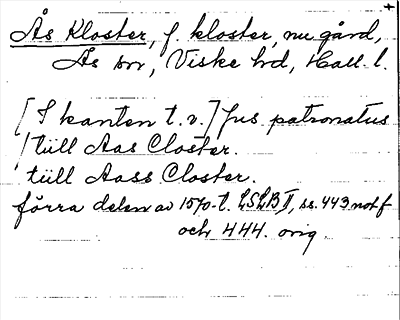 Ås Kloster, f. kloster, nu gård,
Ås sn, Viske hd, Hall. l.
[I kanten t. v.] Jus patronatus
tiill Aas Closter.
tiill Aass Closter.
förra delen av 1570-t. LSLB II, ss. 443 not f
och 444. orig.